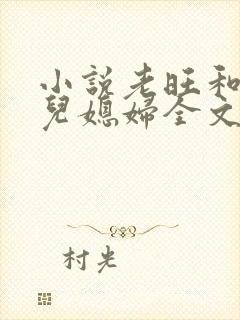 小說老旺和
兒媳婦全文
村光